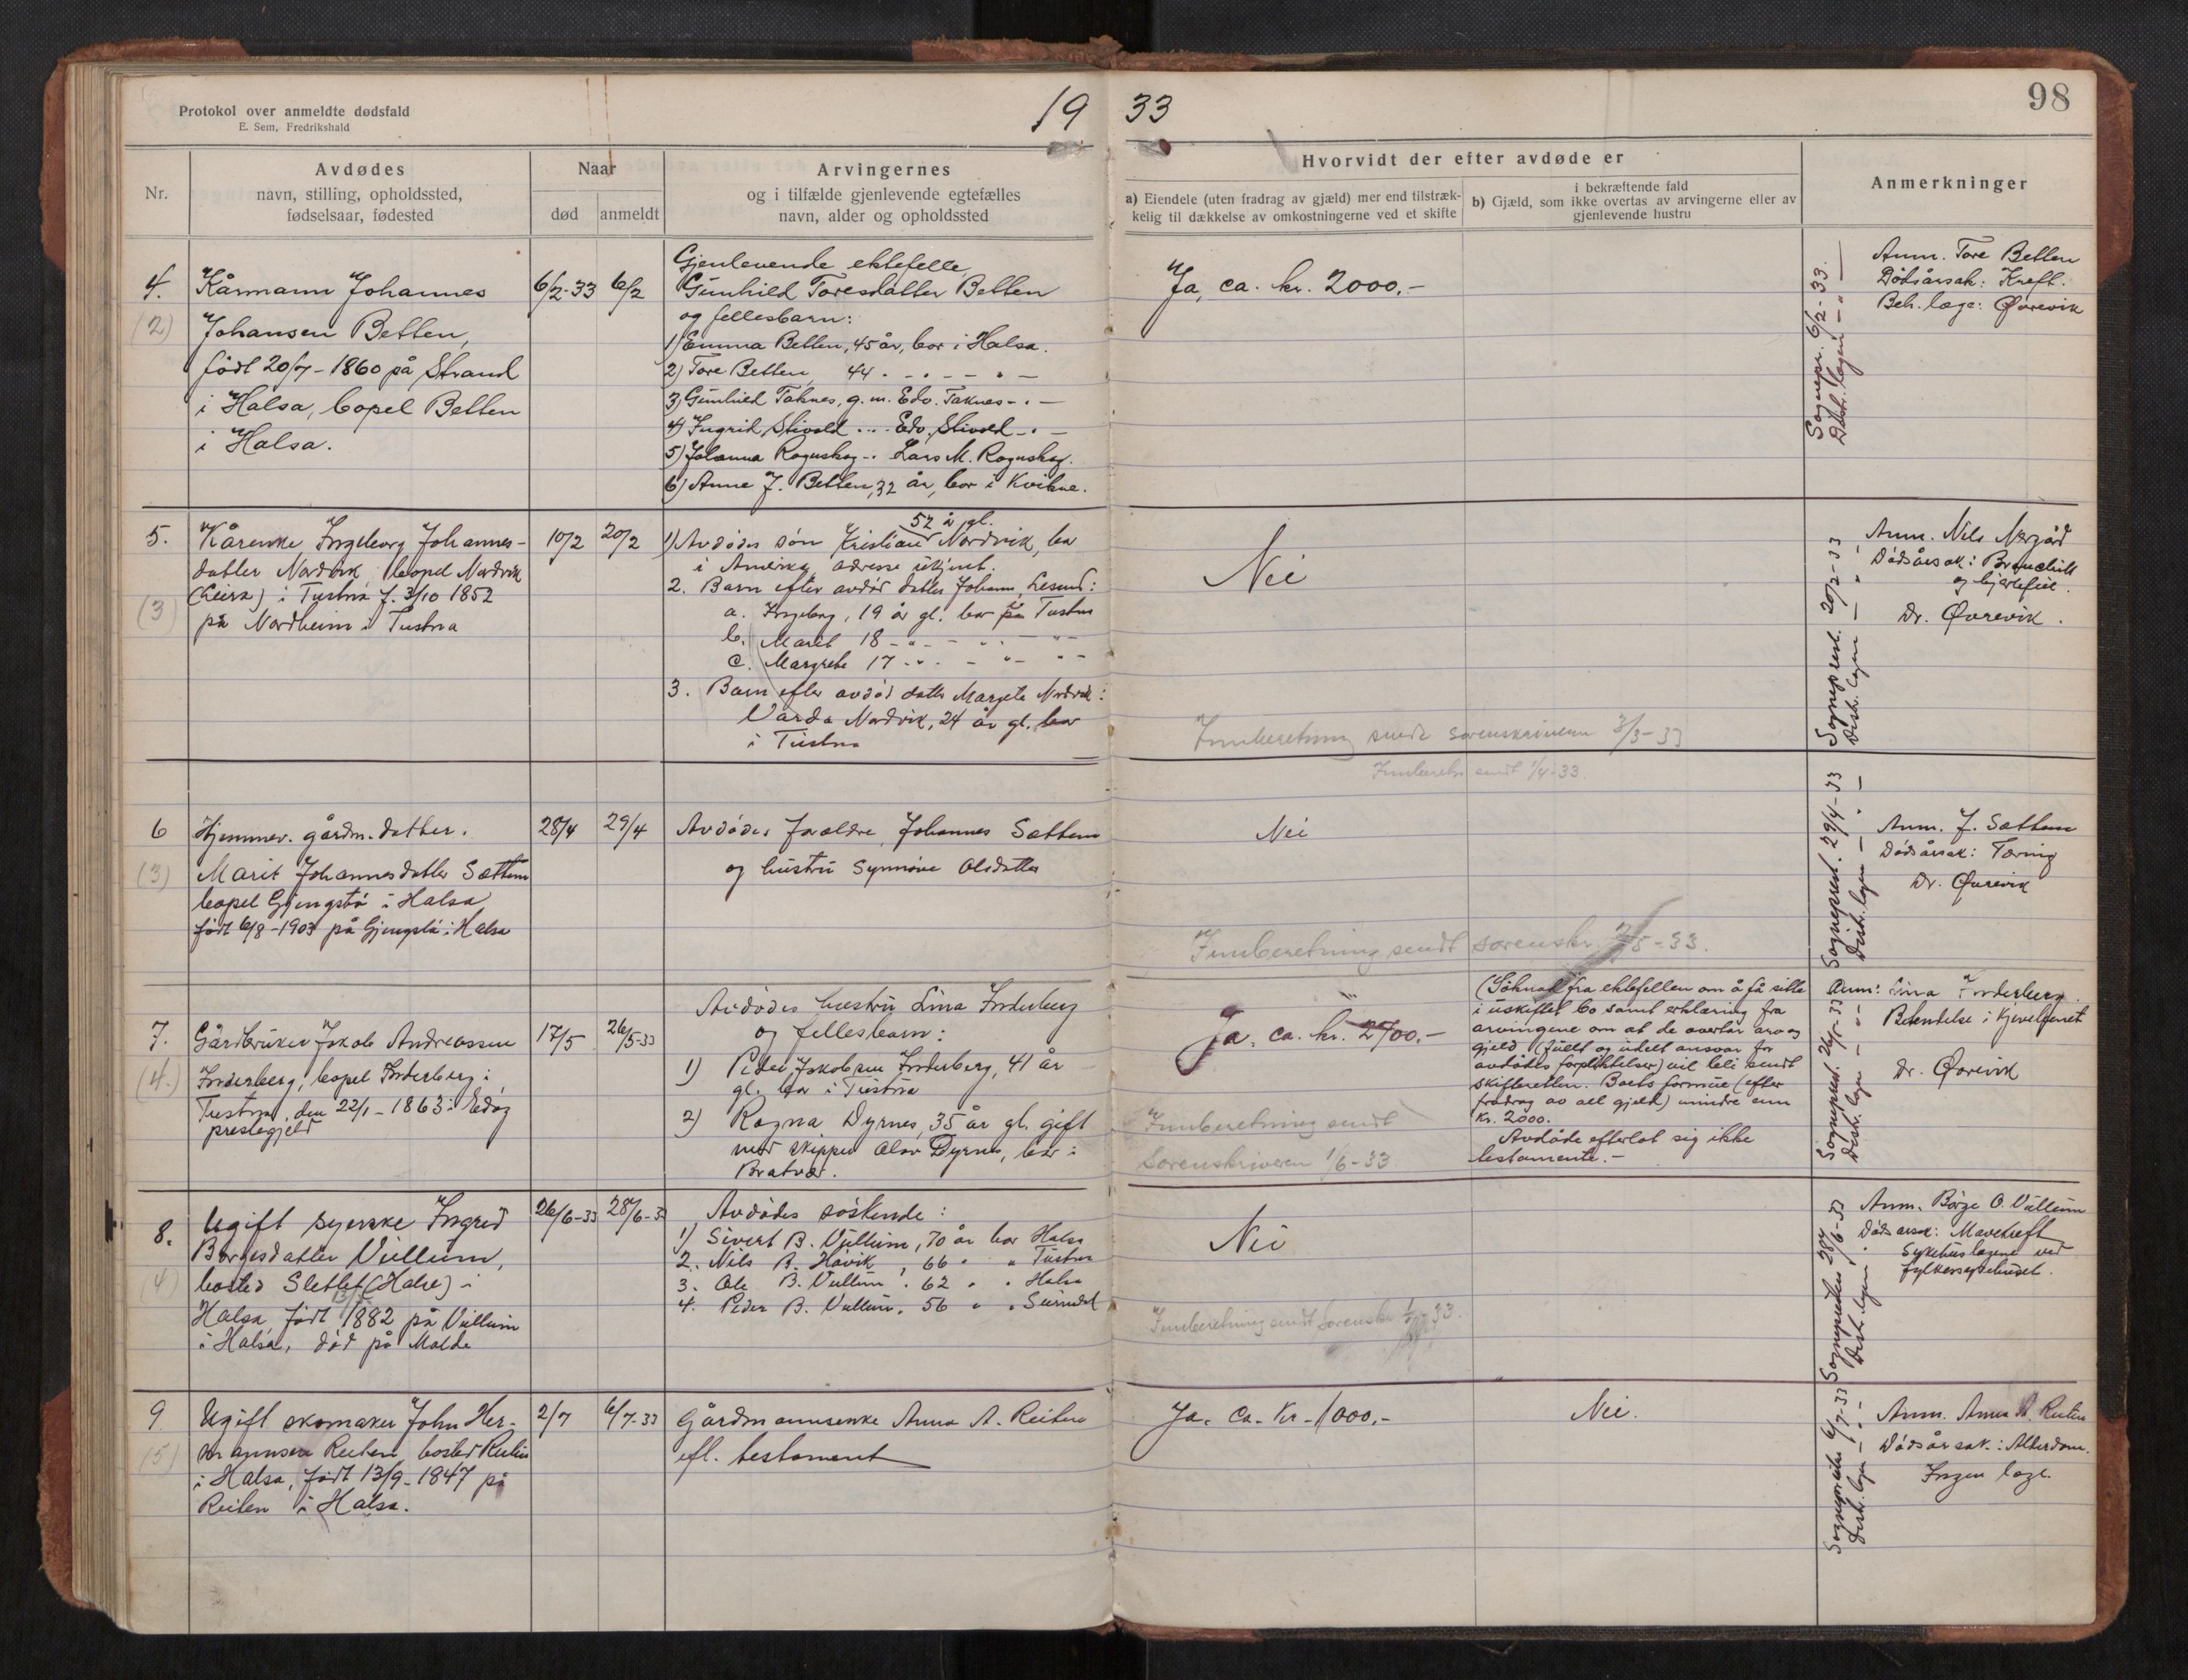 Protokol over anmeldte dødsfald
E. Sem, Fredrikshald
19 33
98
Nr.
Avdødes
navn, stilling, opholdssted,
fødselsaar, fødested
Naar
død
anmeldt
Arvingernes
og i tilfælde gjenlevende egtefælles
navn, alder og opholdssted
Hvorvidt der efter avdøde er
a) Eiendele (uten fradrag av gjæld) mer end tilstræk-
kelig til dækkelse av omkostningerne ved et skifte
i bekræftende fald
b) Gjæld, som ikke overtas av arvingerne eller av
gjenlevende hustru
Anmerkninger
4.
(2)
Kårmann Johannes
Johansen Betten,
født 20/7 - 1860 på Strand
i Halsa, bopel Betten
i Halsa.
6/2-33
6/2
Gjenlevende ektefelle
Gunhild Toresdatter Betten
og fellesbarn:
1) Emma Betten, 45 år, bor i Halsa.
2) Tore Betten, 44 " - " - - " -
3) Gunhild Taknes, g. m. Edv. Taknes - " -
4) Ingrid Stivold " " - Edv. Stivold - " -
5) Johanna Rognskog - " Lars M. Rognskog.
6) Anne J. Betten, 32 år, bor i Kvikne.
Ja, ca. kr. 2000.-
Sognepr. 6/2-33.
Distr. legen - " -
Anm. Tore Betten
Dødsårsak: Kreft.
Beh. læge: Øvrevik
5.
(3)
Kårenke Ingeborg Johannes-
datter Nordvik, bopel Nordvik
(Leira) i Tustna f. 3/10 1852
på Nordheim i Tustna
10/2
20/2
52 å gl.
1) Avdødes søn Kristian Nordvik, bor
i Amerika, adresse ukjent.
2. Barn efter avdød datter Johann Lesund:
a. Ingeborg, 19 år gl. bor på Tustna
b. Marit 18 - " - - " - " -
c. Margrete 17 - " - - " - " -
3. Barn efter avdød datter Margete Nordvik:
Varda Nordvik, 24 år gl. bor
i Tustna
Nei
Innberetning sendt sorenskriveren 3/3-33
Sogneprest. 20/2-33
Distr. legen - " -
Anm. Nils Nergård
Dødsårsak: Bronchitt
og hjertefeil.
Dr. Øvrevik.
Innberetn sendt 1/4-33.
6
(3)
Hjemmev. gårdm. datter.
Marit Johannesdatter Sættem
bopel Gjengstø i Halsa
født 6/8-1903 på Gjengstø i Halsa
28/4
29/4
Avdødes forældre, Johannes Sættem
og hustru Synnøve Olsdatter
Nei
Innberetning sendt sorenskr. /5-33.
Sogneprest. 29/4-33
Distr. legen - " -
Anm. J. Sættem
Dødsårsak: Tæring
Dr. Øvrevik
7.
(4.)
Gårdbruker Jakob Andreassen
Inderberg, bopel Inderberg i
Tustna, den 22/1 - 1863 i Edøy
prestegjeld
17/5
26/5-33
Avdødes hustru Lina Inderberg
og fellesbarn:
1) Peder Jakobsen Inderberg, 41 år
gl. bor i Tustna
2) Ragna Dyrnes, 35 år gl. gift
med skipper Olav Dyrnes, bor i
Bratvær.
Ja, ca. kr. 2700.-
Innberetning sendt
Sorenskriveren 1/6-33
(Søknad fra ektefellen om å få sitte
i uskiftet bo samt erklæring fra
arvingene om at de overtar arv og
gjeld (fullt og udelt ansvar for
avdødes forpliktelser) vil bli sendt
skifteretten. Boets formue (efter
fradrag av all gjeld) mindre enn
kr. 2000.
Avdøde efterlot sig ikke
testamente.-
Sogneprest. 26/5-33
Distr. legen - " -
Anm: Lina Inderberg.
Betendelse i hjernen
Dr. Øvrevik
8.
(4)
Ugift syerske Ingrid
Børgesdatter Vullum,
bosted Slettet (Halse) i
Halsa, født 1882 på Vullum
i Halsa, død på Molde
26/6-33
28/6-33
Avdødes søskende:
1) Sivert B. Vullum, 70 år bor Halsa
2. Nils B. Håvik, 66 " " Tustna
3. Ole B. Vullum, 62 " " Halsa
4. Peder B. Vullum, 56 " " Surndal
Nei
Innberetning sendt Sorenskr. 33.
Sognepresten 28/6-33
Distr. legen - " -
Anm. Børge O. Vullum
Dødsårsak: Mavekreft
Sykehuslægene ved
fylkessykehuset.
9
(5)
Ugift skomaker John Her-
mannsen Reiten bosted Reiten
i Halsa, født 13/9-1847 på
Reiten i Halsa.
2/7
6/7-33
Gårdmannsenke Anna A. Reiten
efl. testament
Ja, Ca. Kr. 1000.-
Nei.
Sognepresten 6/7-33
Distr. legen - " -
Anm. Anna A. Reiten
Dødsårsak: Alderdom.
Ingen læge.